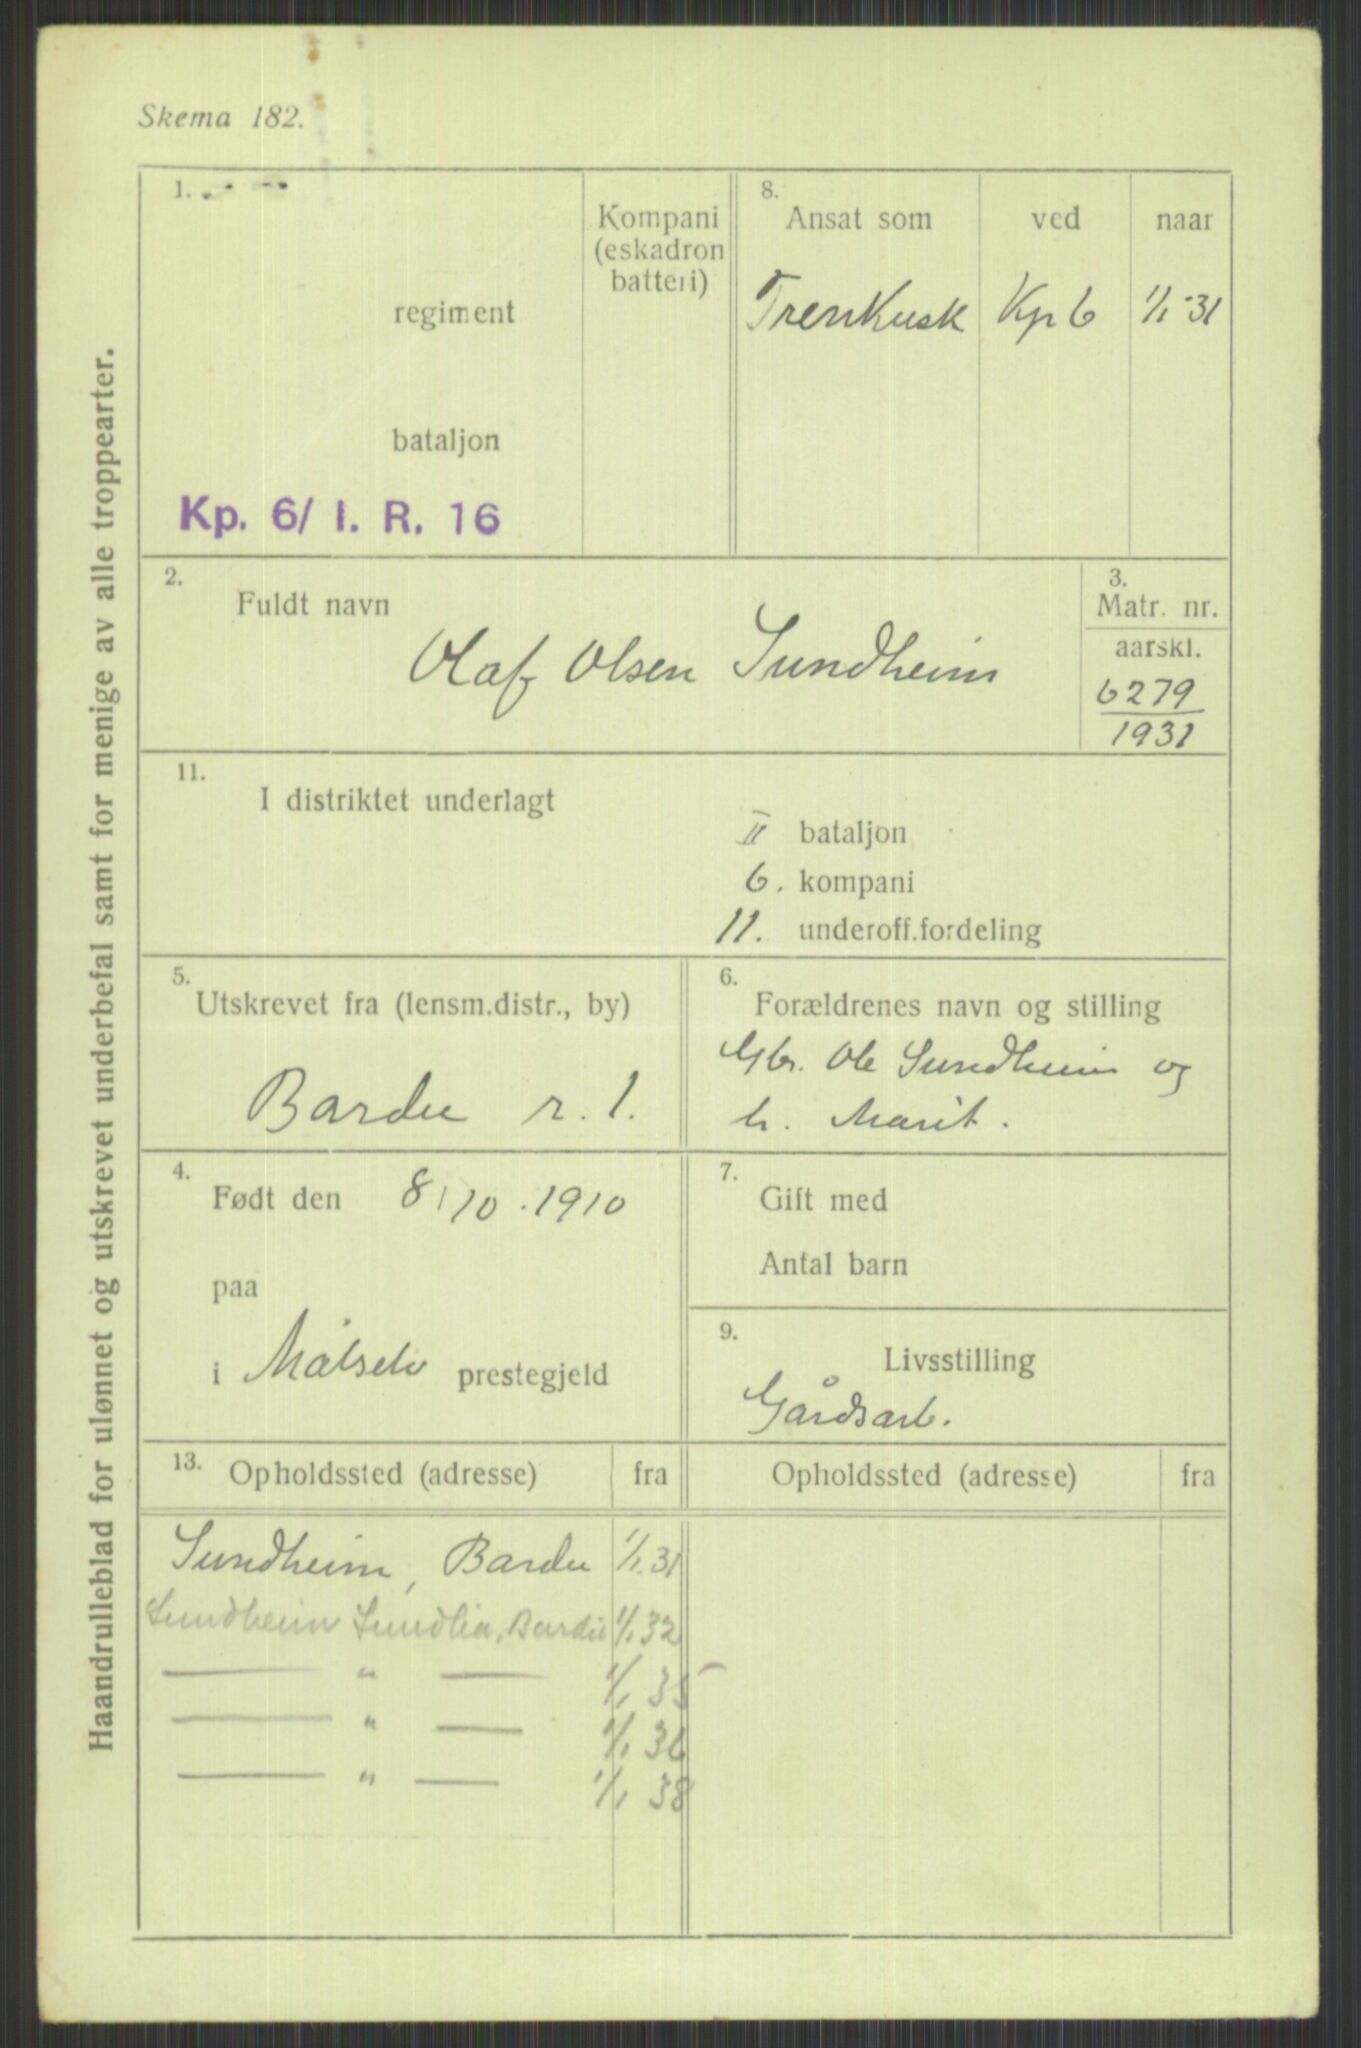 Skema 182.
Haandrulleblad for ulønnet og utskrevet underbefal samt for menige av alle troppearter.
1.
regiment
bataljon
Kp. 6/ I. R. 16
Kompani
(eskadron
batteri)
8.
Ansat som ved naar
Trenkusk Kp 6 1/1-31
2.
Fuldt navn
Olaf Olsen Sundheim
3.
Matr. nr.
aarskl.
6279
1931
11.
I distriktet underlagt
II bataljon
6. kompani
11. underoff.fordeling
5.
Utskrevet fra (lensm.distr., by)
Bardu r. 1.
6.
Forældrenes navn og stilling
Gbr. Ole Sundheim og
h. Marit.
4.
Født den 8/10.1910
paa
i Målselv prestegjeld
7.
Gift med
Antal barn
9.
Livsstilling
Gårdsarb.
13.
Opholdssted (adresse) fra Opholdssted (adresse) fra
Sundheim, Bardu 1/1.31
Sundheim Sundlia, Bardu 1/1 32
— " — 1/1 35
— " — 1/1 36
— " — 1/1 38